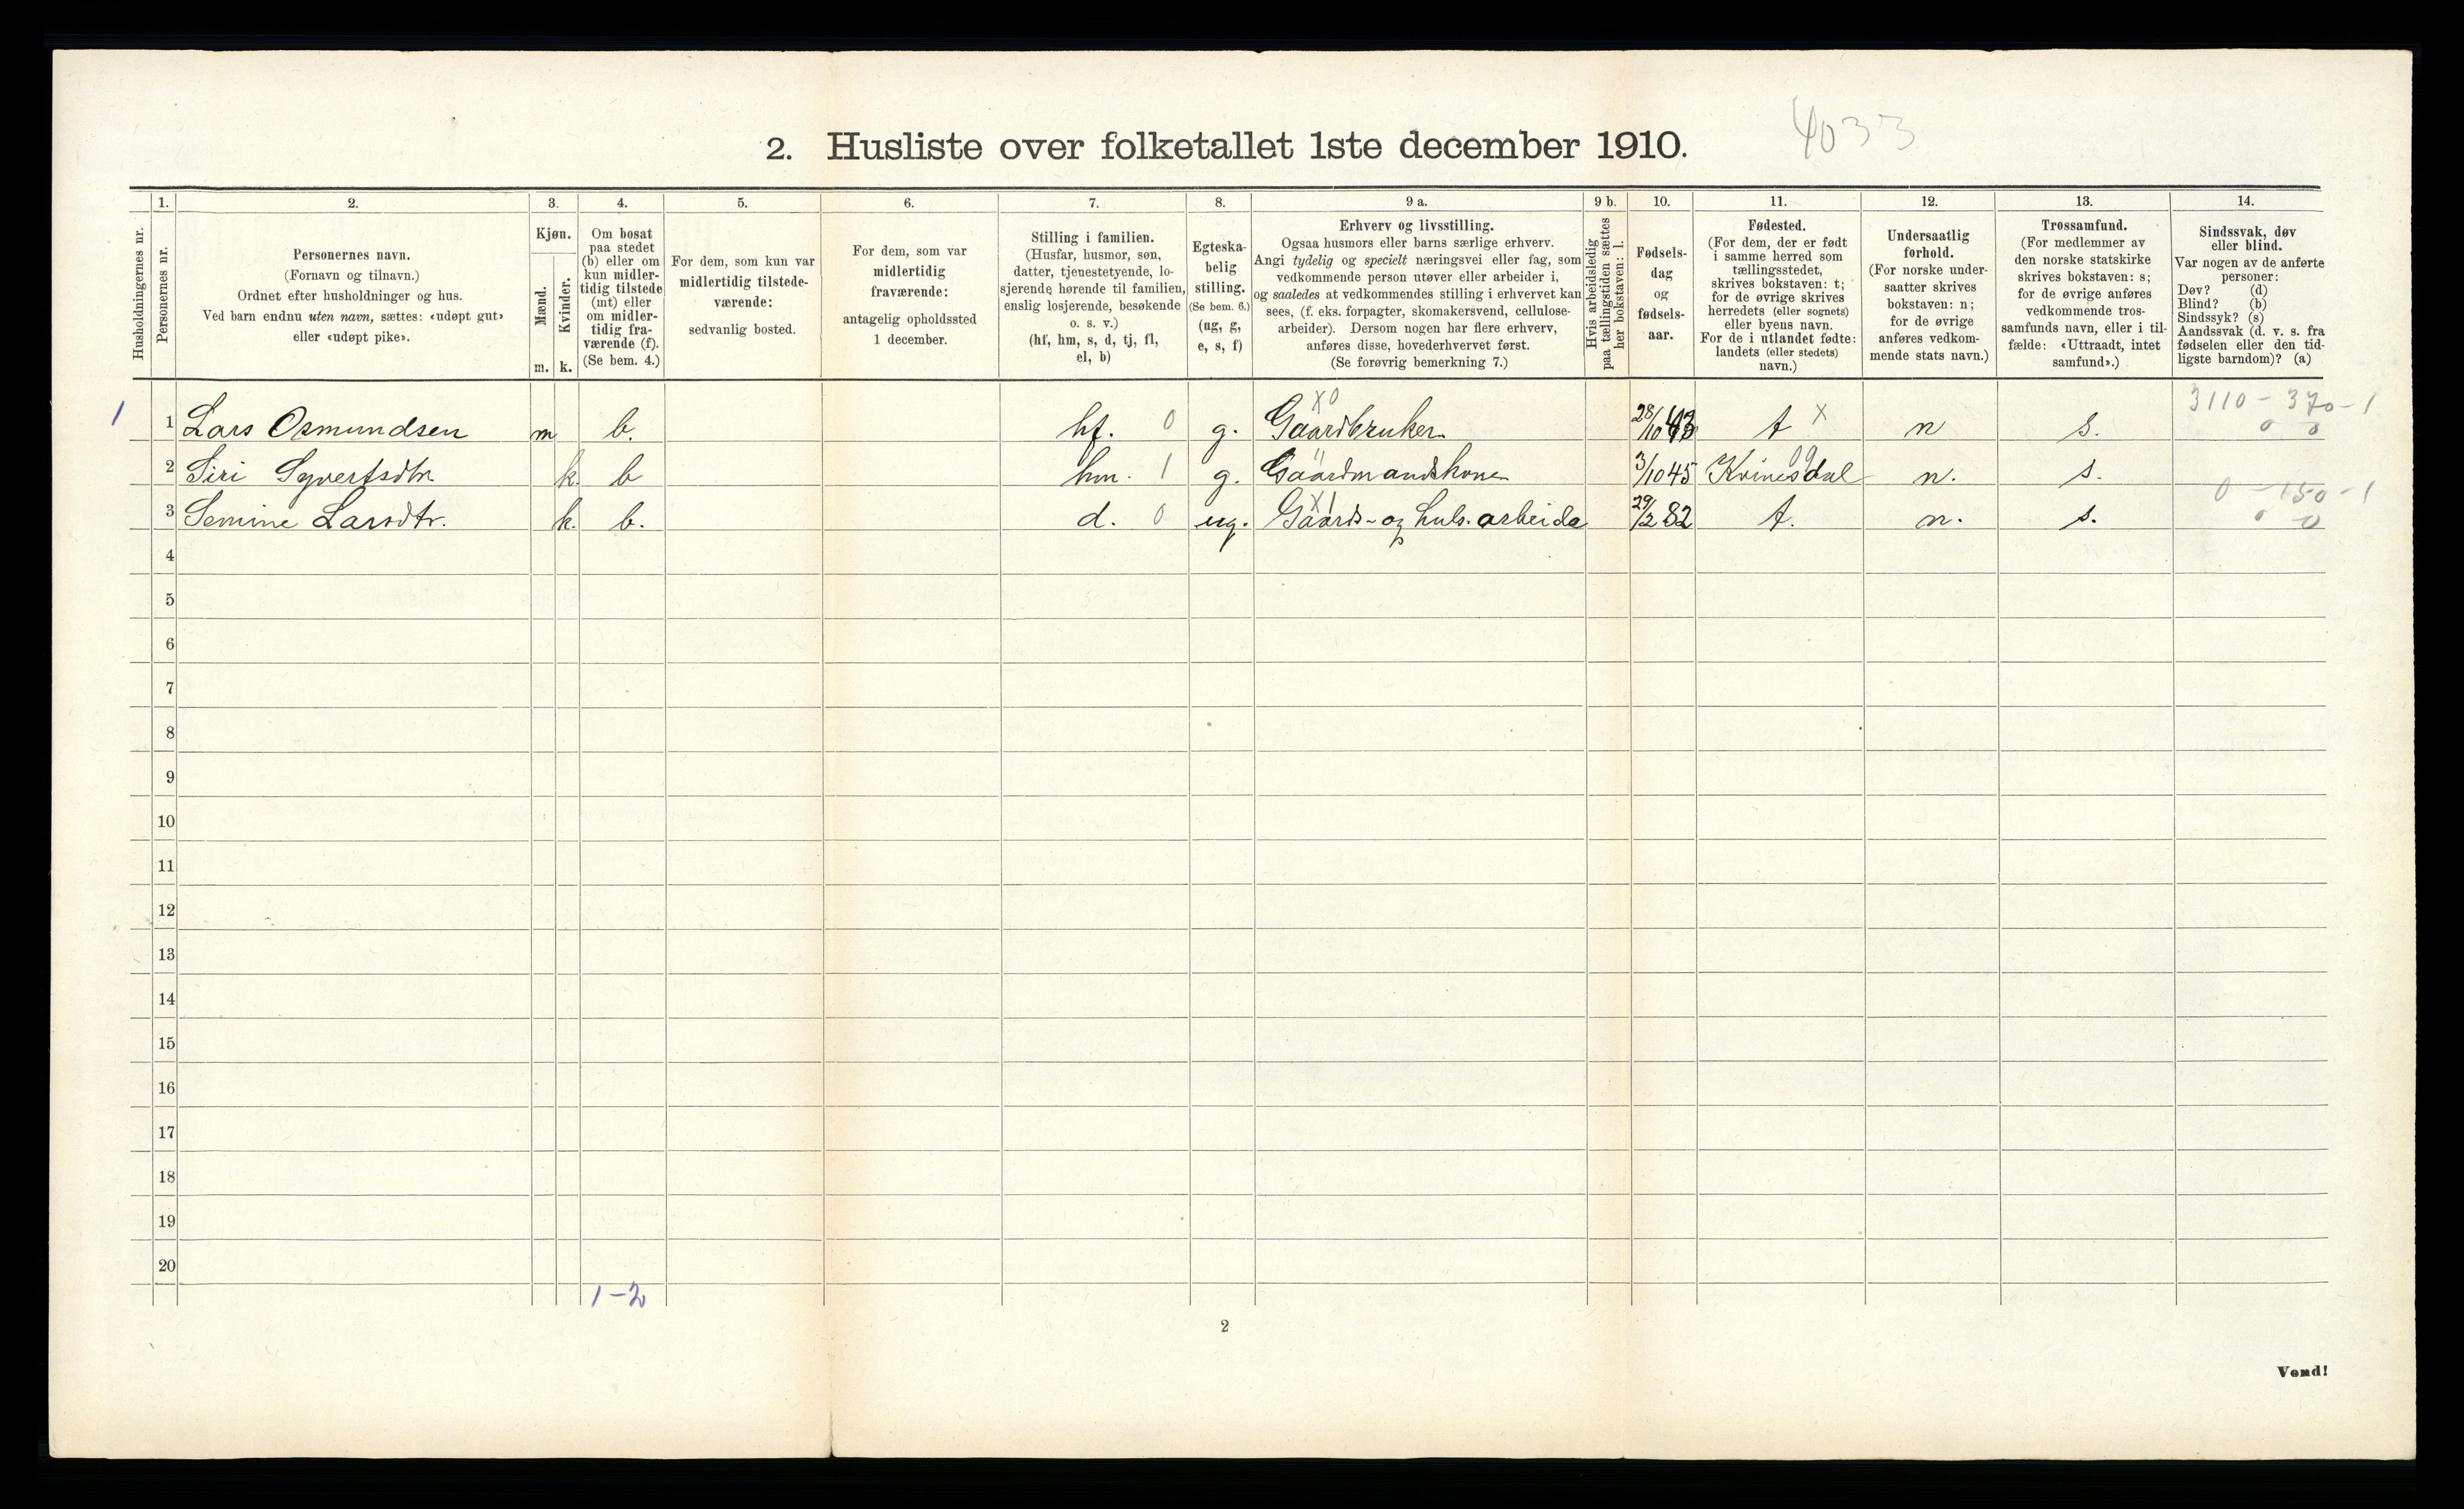 4033
2. Husliste over folketallet 1ste december 1910.
Husholdningernes nr.
1.
Personernes nr.
2.
Personernes navn.
(Fornavn og tilnavn.)
Ordnet efter husholdninger og hus.
Ved barn endnu uten navn, sættes: «udøpt gut»
eller «udøpt pike».
3.
Kjøn.
Mænd.
m.
Kvinder.
k.
4.
Om bosat
paa stedet
(b) eller om
kun midler-
tidig tilstede
(mt) eller
om midler-
tidig fra-
værende (f).
(Se bem. 4.)
5.
For dem, som kun var
midlertidig tilstede-
værende:
sedvanlig bosted.
6.
For dem, som var
midlertidig
fraværende:
antagelig opholdssted
1 december.
7.
Stilling i familien.
(Husfar, husmor, søn,
datter, tjenestetyende, lo-
sjerende hørende til familien,
enslig losjerende, besøkende
o. s. v.)
(hf, hm, s, d, tj, fl,
el, b)
8.
Egteska-
belig
stilling.
(Se bem. 6.)
(ug, g,
e, s, f)
9 a.
Erhverv og livsstilling.
Ogsaa husmors eller barns særlige erhverv.
Angi tydelig og specielt næringsvei eller fag, som
vedkommende person utøver eller arbeider i,
og saaledes at vedkommendes stilling i erhvervet kan
sees, (f. eks. forpagter, skomakersvend, cellulose-
arbeider). Dersom nogen har flere erhverv,
anføres disse, hovederhvervet først.
(Se forøvrig bemerkning 7.)
9 b.
Hvis arbeidsledig
paa tællingstiden sættes
her bokstaven: l.
10.
Fødsels-
dag
og
fødsels-
aar.
11.
Fødested.
(For dem, der er født
i samme herred som
tællingsstedet,
skrives bokstaven: t;
for de øvrige skrives
herredets (eller sognets)
eller byens navn.
For de i utlandet fødte:
landets (eller stedets)
navn.)
12.
Undersaatlig
forhold.
(For norske under-
saatter skrives
bokstaven: n;
for de øvrige
anføres vedkom-
mende stats navn.)
13.
Trossamfund.
(For medlemmer av
den norske statskirke
skrives bokstaven: s;
for de øvrige anføres
vedkommende tros-
samfunds navn, eller i til-
fælde: «Uttraadt, intet
samfund».)
14.
Sindssvak, døv
eller blind.
Var nogen av de anførte
personer:
Døv? (d)
Blind? (b)
Sindssyk? (s)
Aandssvak (d. v. s. fra
fødselen eller den tid-
ligste barndom)? (a)
X0 3110 - 370 - 1
1 1 Lars Osmundsen m b. hf. 0 g. Gaardbruker 28/10 43 t X n s. 0 0
2 Siri Syvertsdtr. k. b hm. 1 g. Gaardmandskone 3/10 45 Kvinesdal 09 n. s.
X1 0 - 150 - 1
3 Semine Larsdtr. k. b. d. 0 ug. Gaards- og huls. arbeide 29/2 82 t. n. s. 0 0
4
5
6
7
8
9
10
11
12
13
14
15
16
17
18
19
20
1-2
2
Vend!